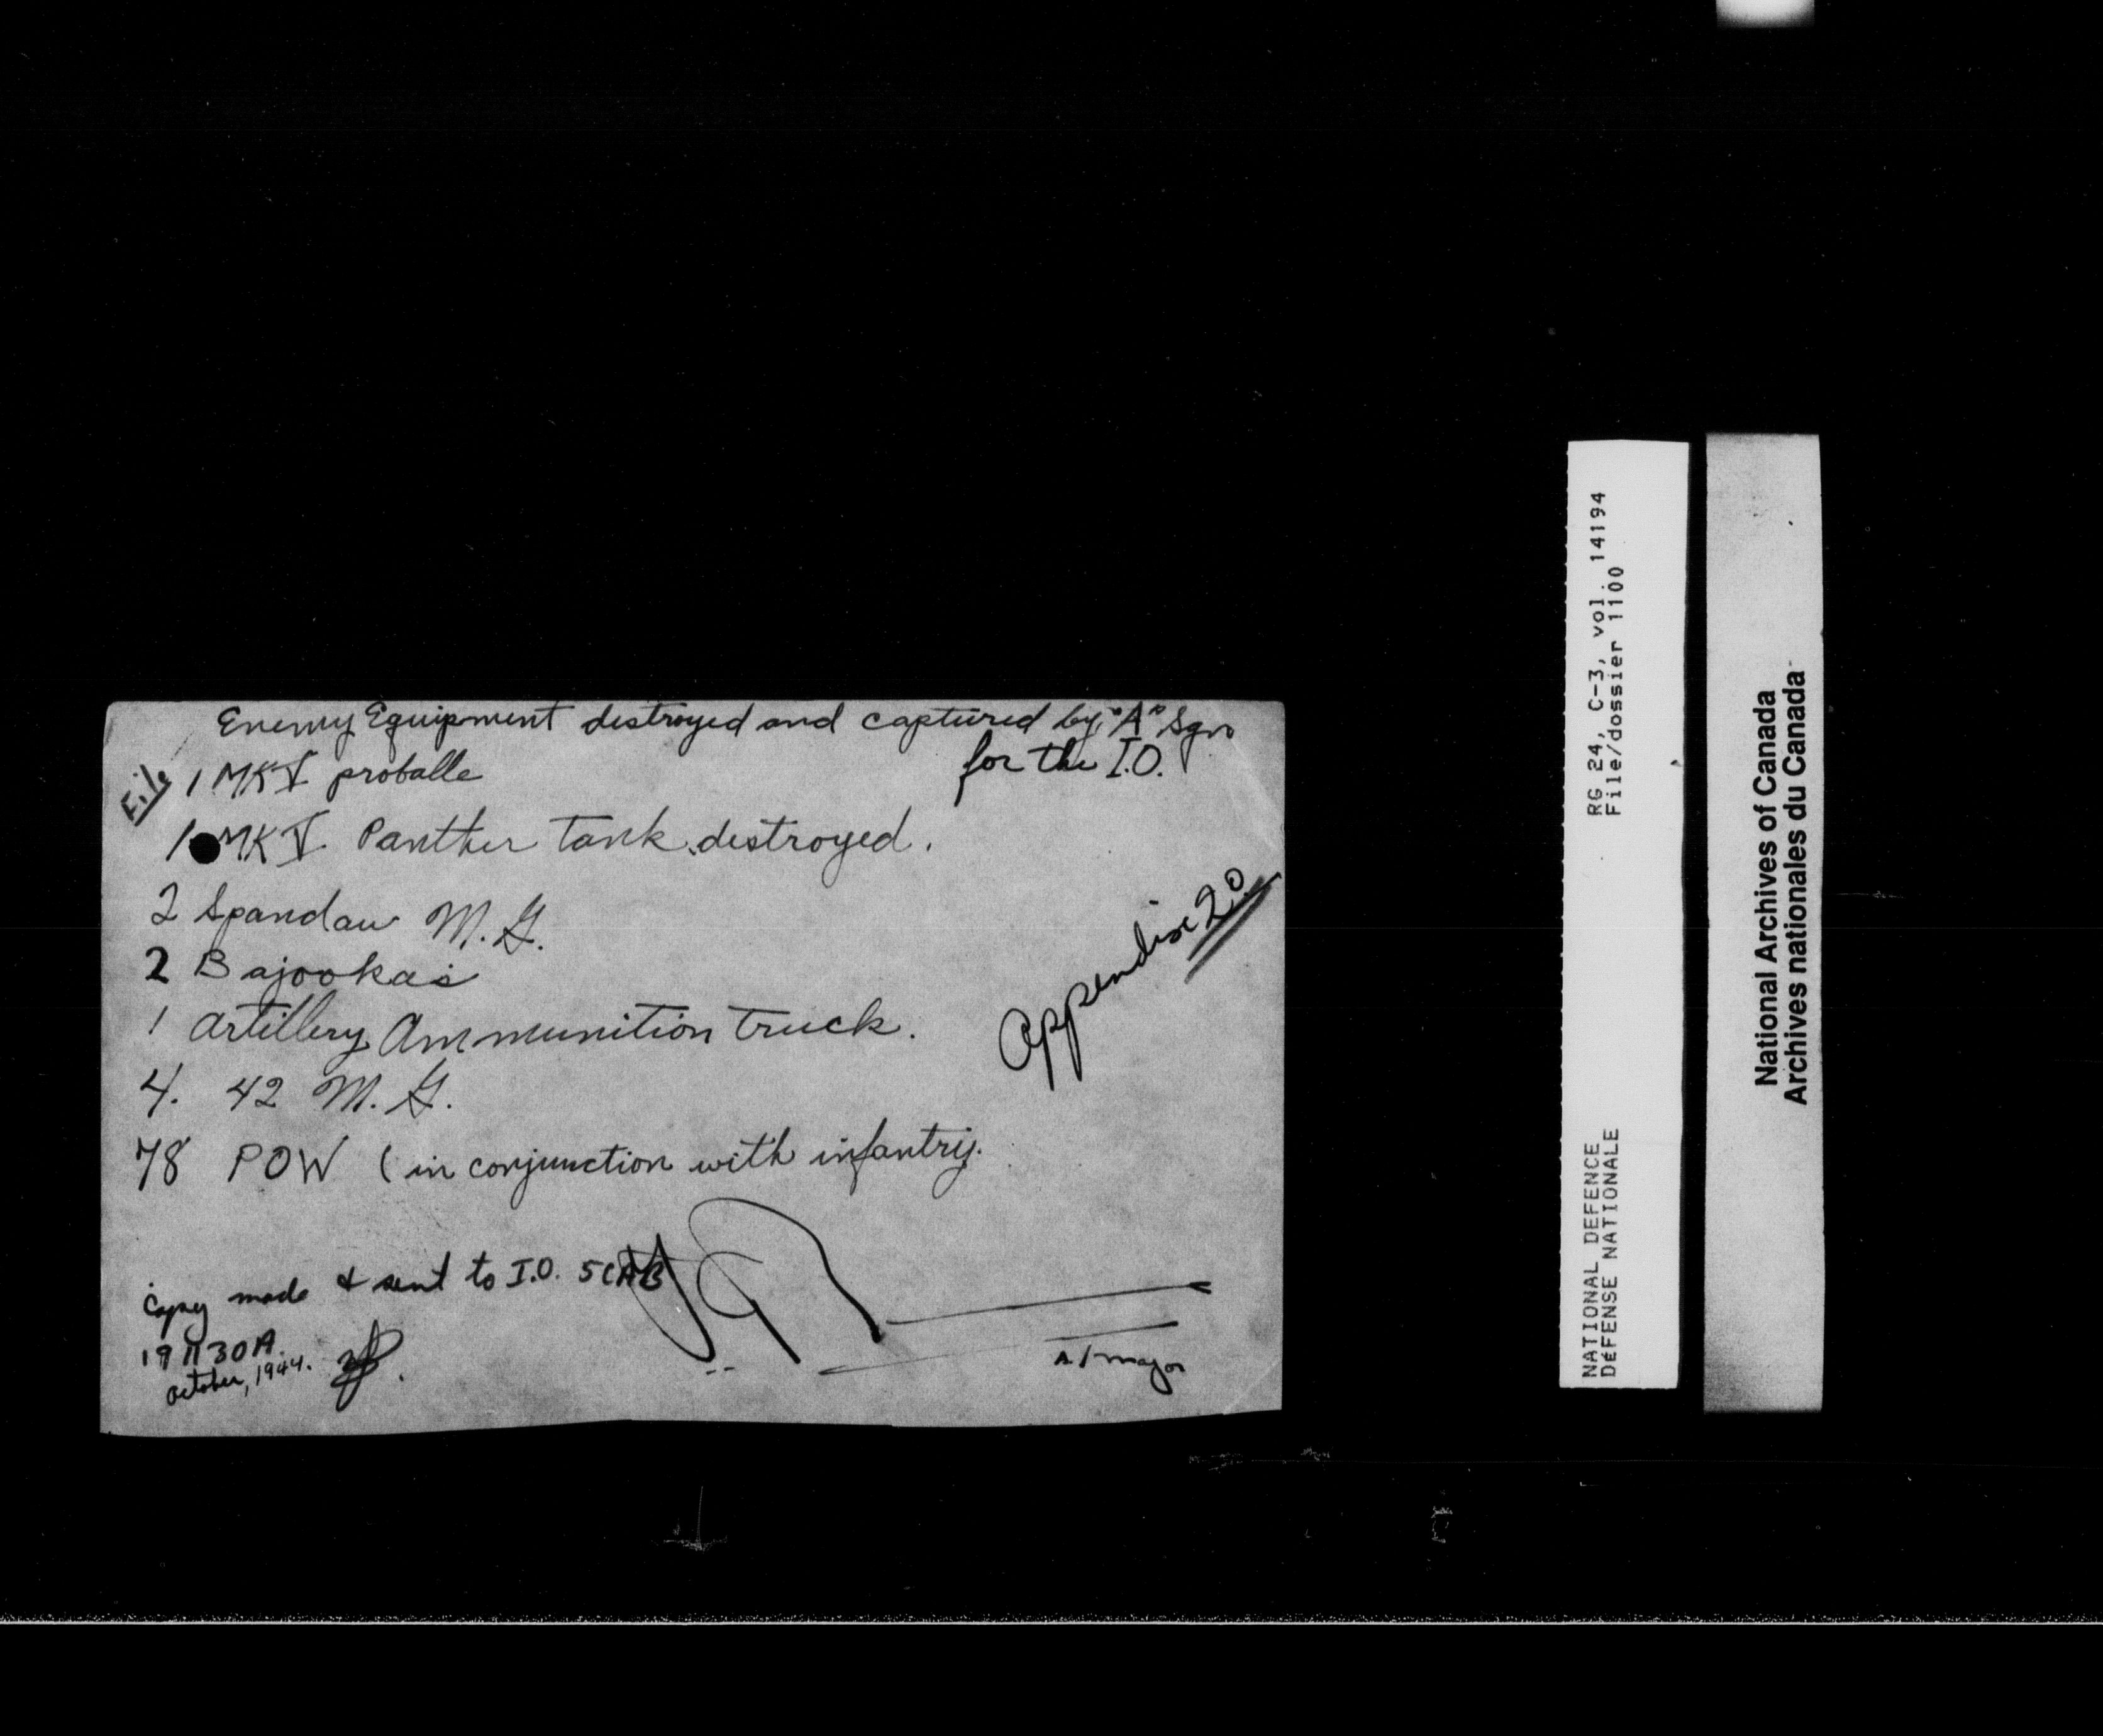 Enemy Equipment destroyed and captured by "A" Sqn
for the I.O.
File
1 MK V proballe
1 MK V Panther tank destroyed.
2 Spandau M.G.
2 Bajookas
1 Artillery Ammunition truck.
4. 42 M.G.
78 POW (in conjunction with infantry.
Appendix 20
Copy made & sent to I.O. 5 CAB
191130A.
October, 1944.
A/Major
RG 24, C-3, vol. 14194
File/dossier 1100
NATIONAL DEFENCE
DéFENSE NATIONALE
National Archives of Canada
Archives nationales du Canada